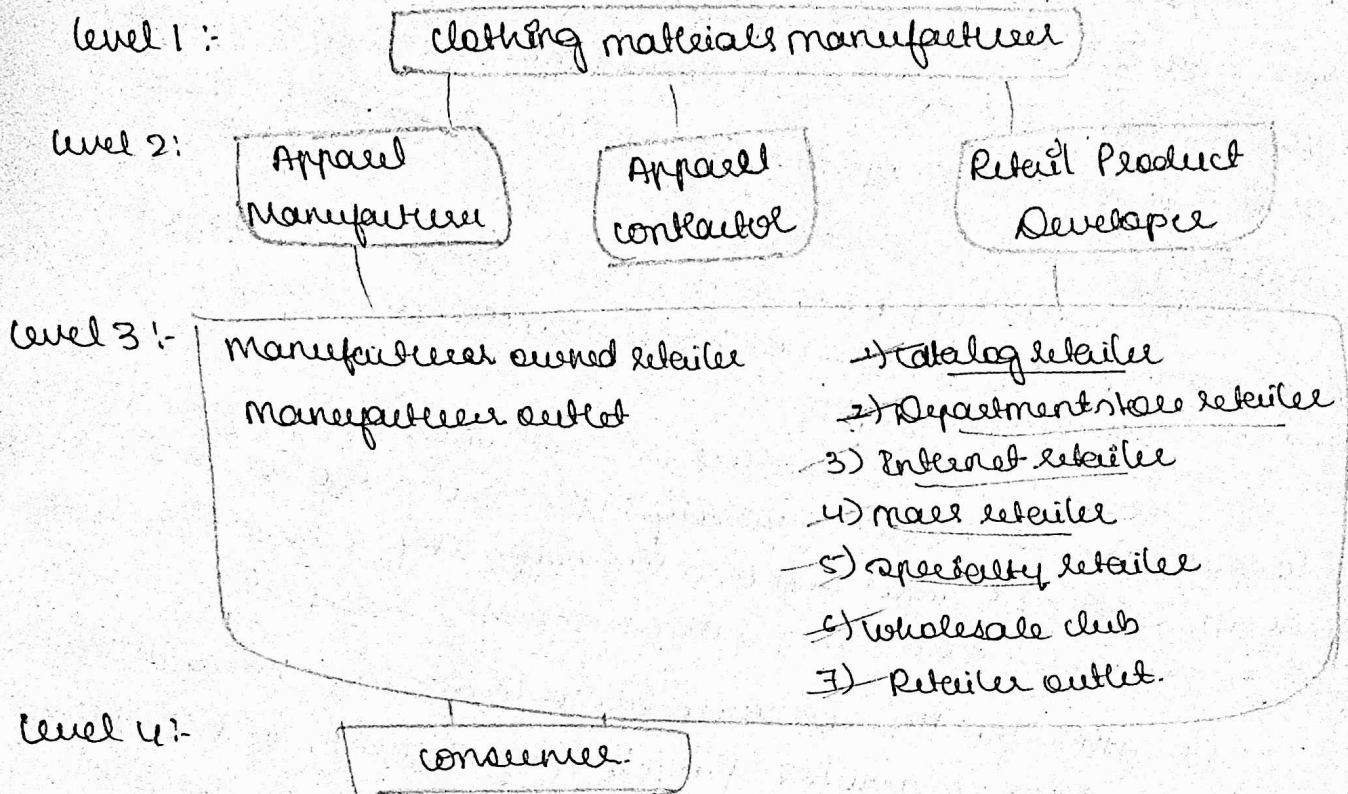 Level 1 :- clothing materials manufacturer
Level 2: Apparel Manufacturer
Apparel contractor
Retail Product Developer
Level 3 :- Manufacturer owned retailer
Manufacturer outlet
1) Catalog retailer
2) Department store retailer
3) Internet retailer
4) mass retailer
5) specialty retailer
6) wholesale club
7) Retailer outlet.
Level 4 :- consumer.